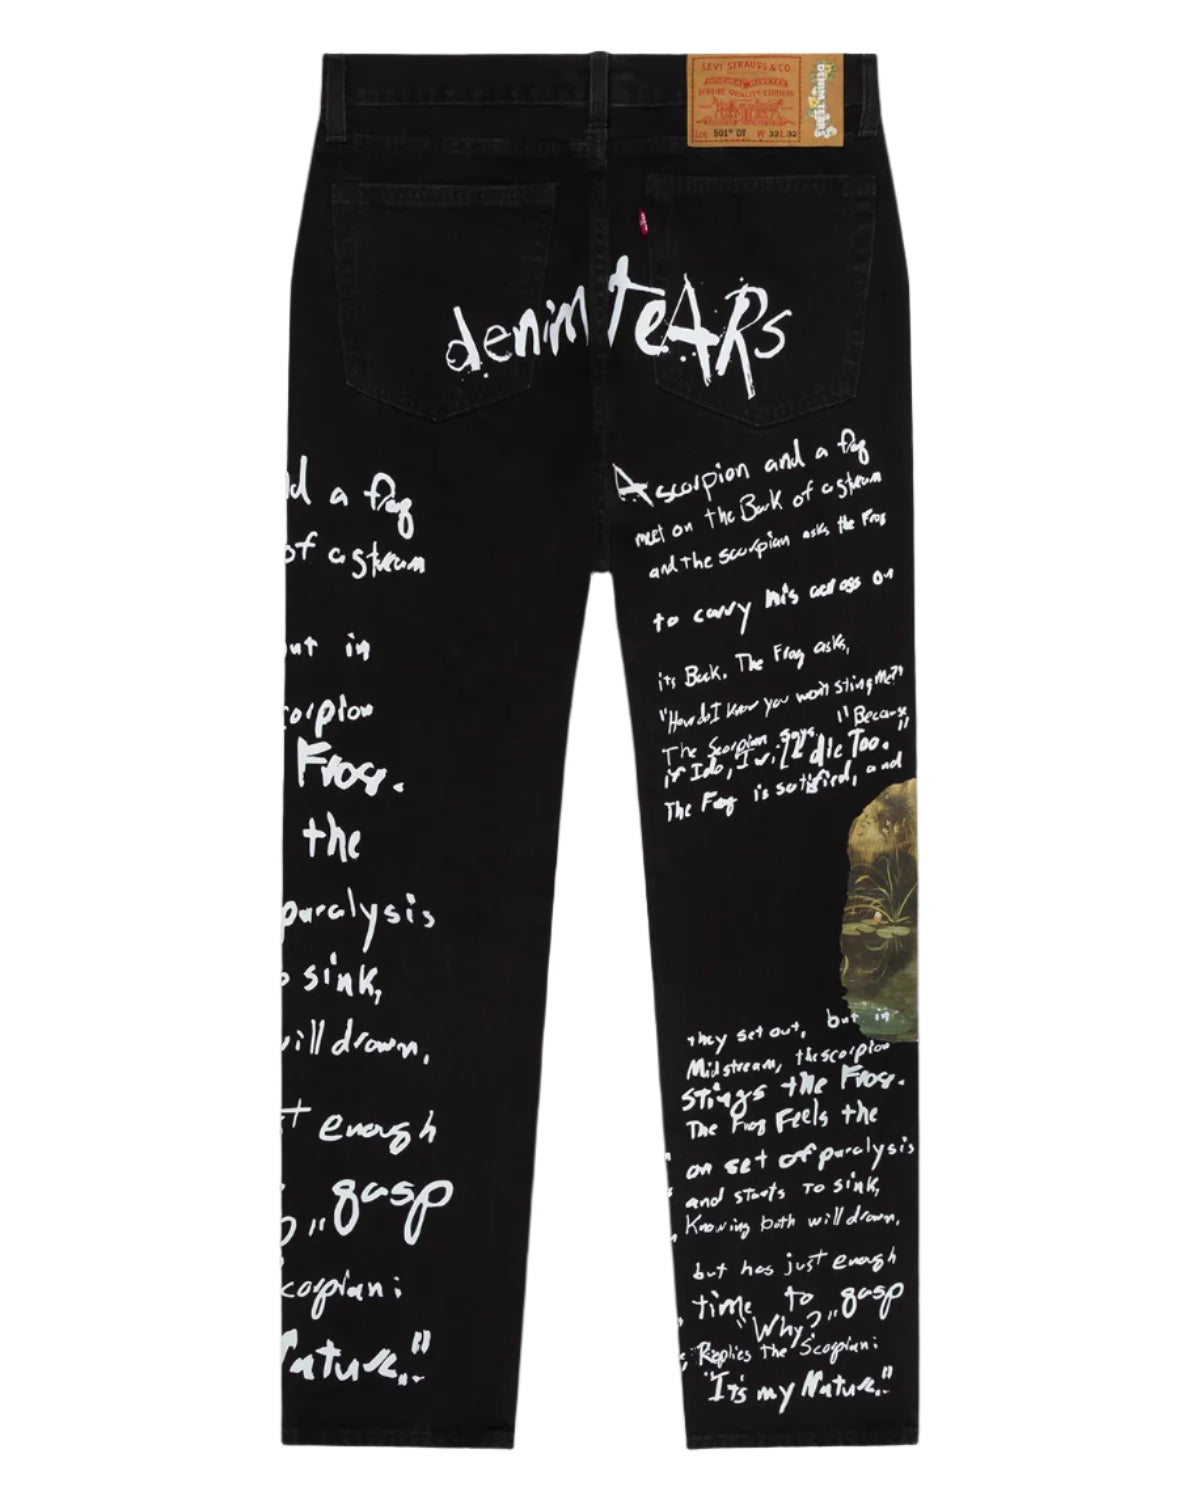 LEVI STRAUSS & CO.
ORIGINAL RIVETED
GENUINE QUALITY CLOTHING
Lot 501® DT W 32 L 32
DENIM TEARS
denim teARs
nd a frog
of a stream
out in
corpion
Frog.
the
paralysis
o sink,
will drown,
st enough
?" gasp
Scorpian:
Nature."
A scorpion and a frog
meet on the Bank of a stream
and the scorpian asks the Frog
to carry his across on
its Back. The Frog asks,
"How do I know you won't Sting Me?"
The Scorpian says, "Because
if I do, I will die Too."
The Frog is satisfied, and
they set out, but in
Midstream, the scorpion
stings the Frog.
The Frog Feels the
on set of paralysis
and starts To sink,
Knowing both will drown,
but has just enough
time to gasp
"Why?"
Replies the Scorpian:
"It's my Nature."